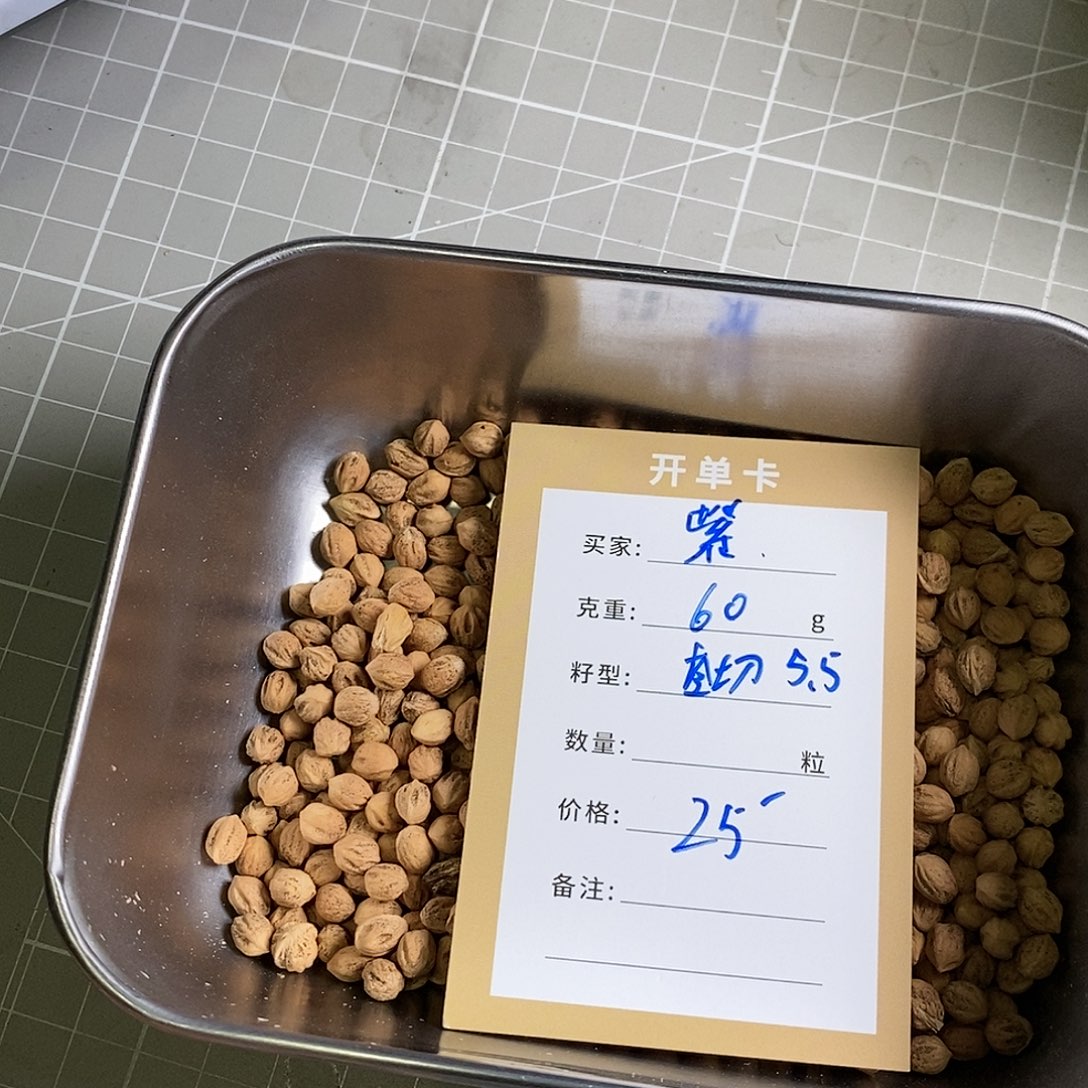 开单卡
买家: 紫
克重: 60 g
籽型: 直切 5.5
数量: 粒
价格: 25
备注: